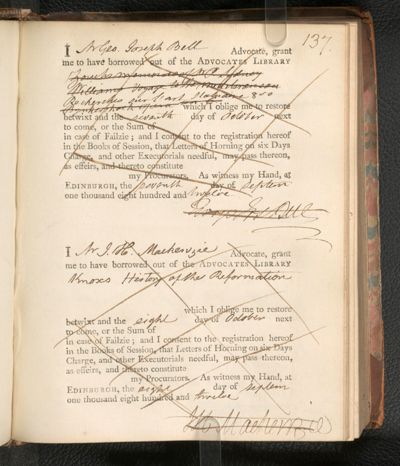 137.
I Mr Geo. Joseph Bell Advocate, grant
me to have borrowed out of the ADVOCATES LIBRARY
Recherches sur
which I oblige me to restore
betwixt and the seventh day of October next
to come, or the Sum of
in case of Failzie; and I consent to the registration hereof
in the Books of Session, that Letters of Horning on six Days
Charge, and other Executorials needful, may pass thereon,
as effeirs, and thereto constitute
my Procurators. As witness my Hand, at
EDINBURGH, the seventh day of Septem
one thousand eight hundred and twelve
I Mr J. H. Mackenzie Advocate, grant
me to have borrowed out of the ADVOCATES LIBRARY
Knoxs History of the Reformation
which I oblige me to restore
betwixt and the eight day of October next
to come, or the Sum of
in case of Failzie; and I consent to the registration hereof
in the Books of Session, that Letters of Horning on six Days
Charge, and other Executorials needful, may pass thereon,
as effeirs, and thereto constitute
my Procurators. As witness my Hand, at
EDINBURGH, the eight day of Septem
one thousand eight hundred and twelve
J H Mackenzie